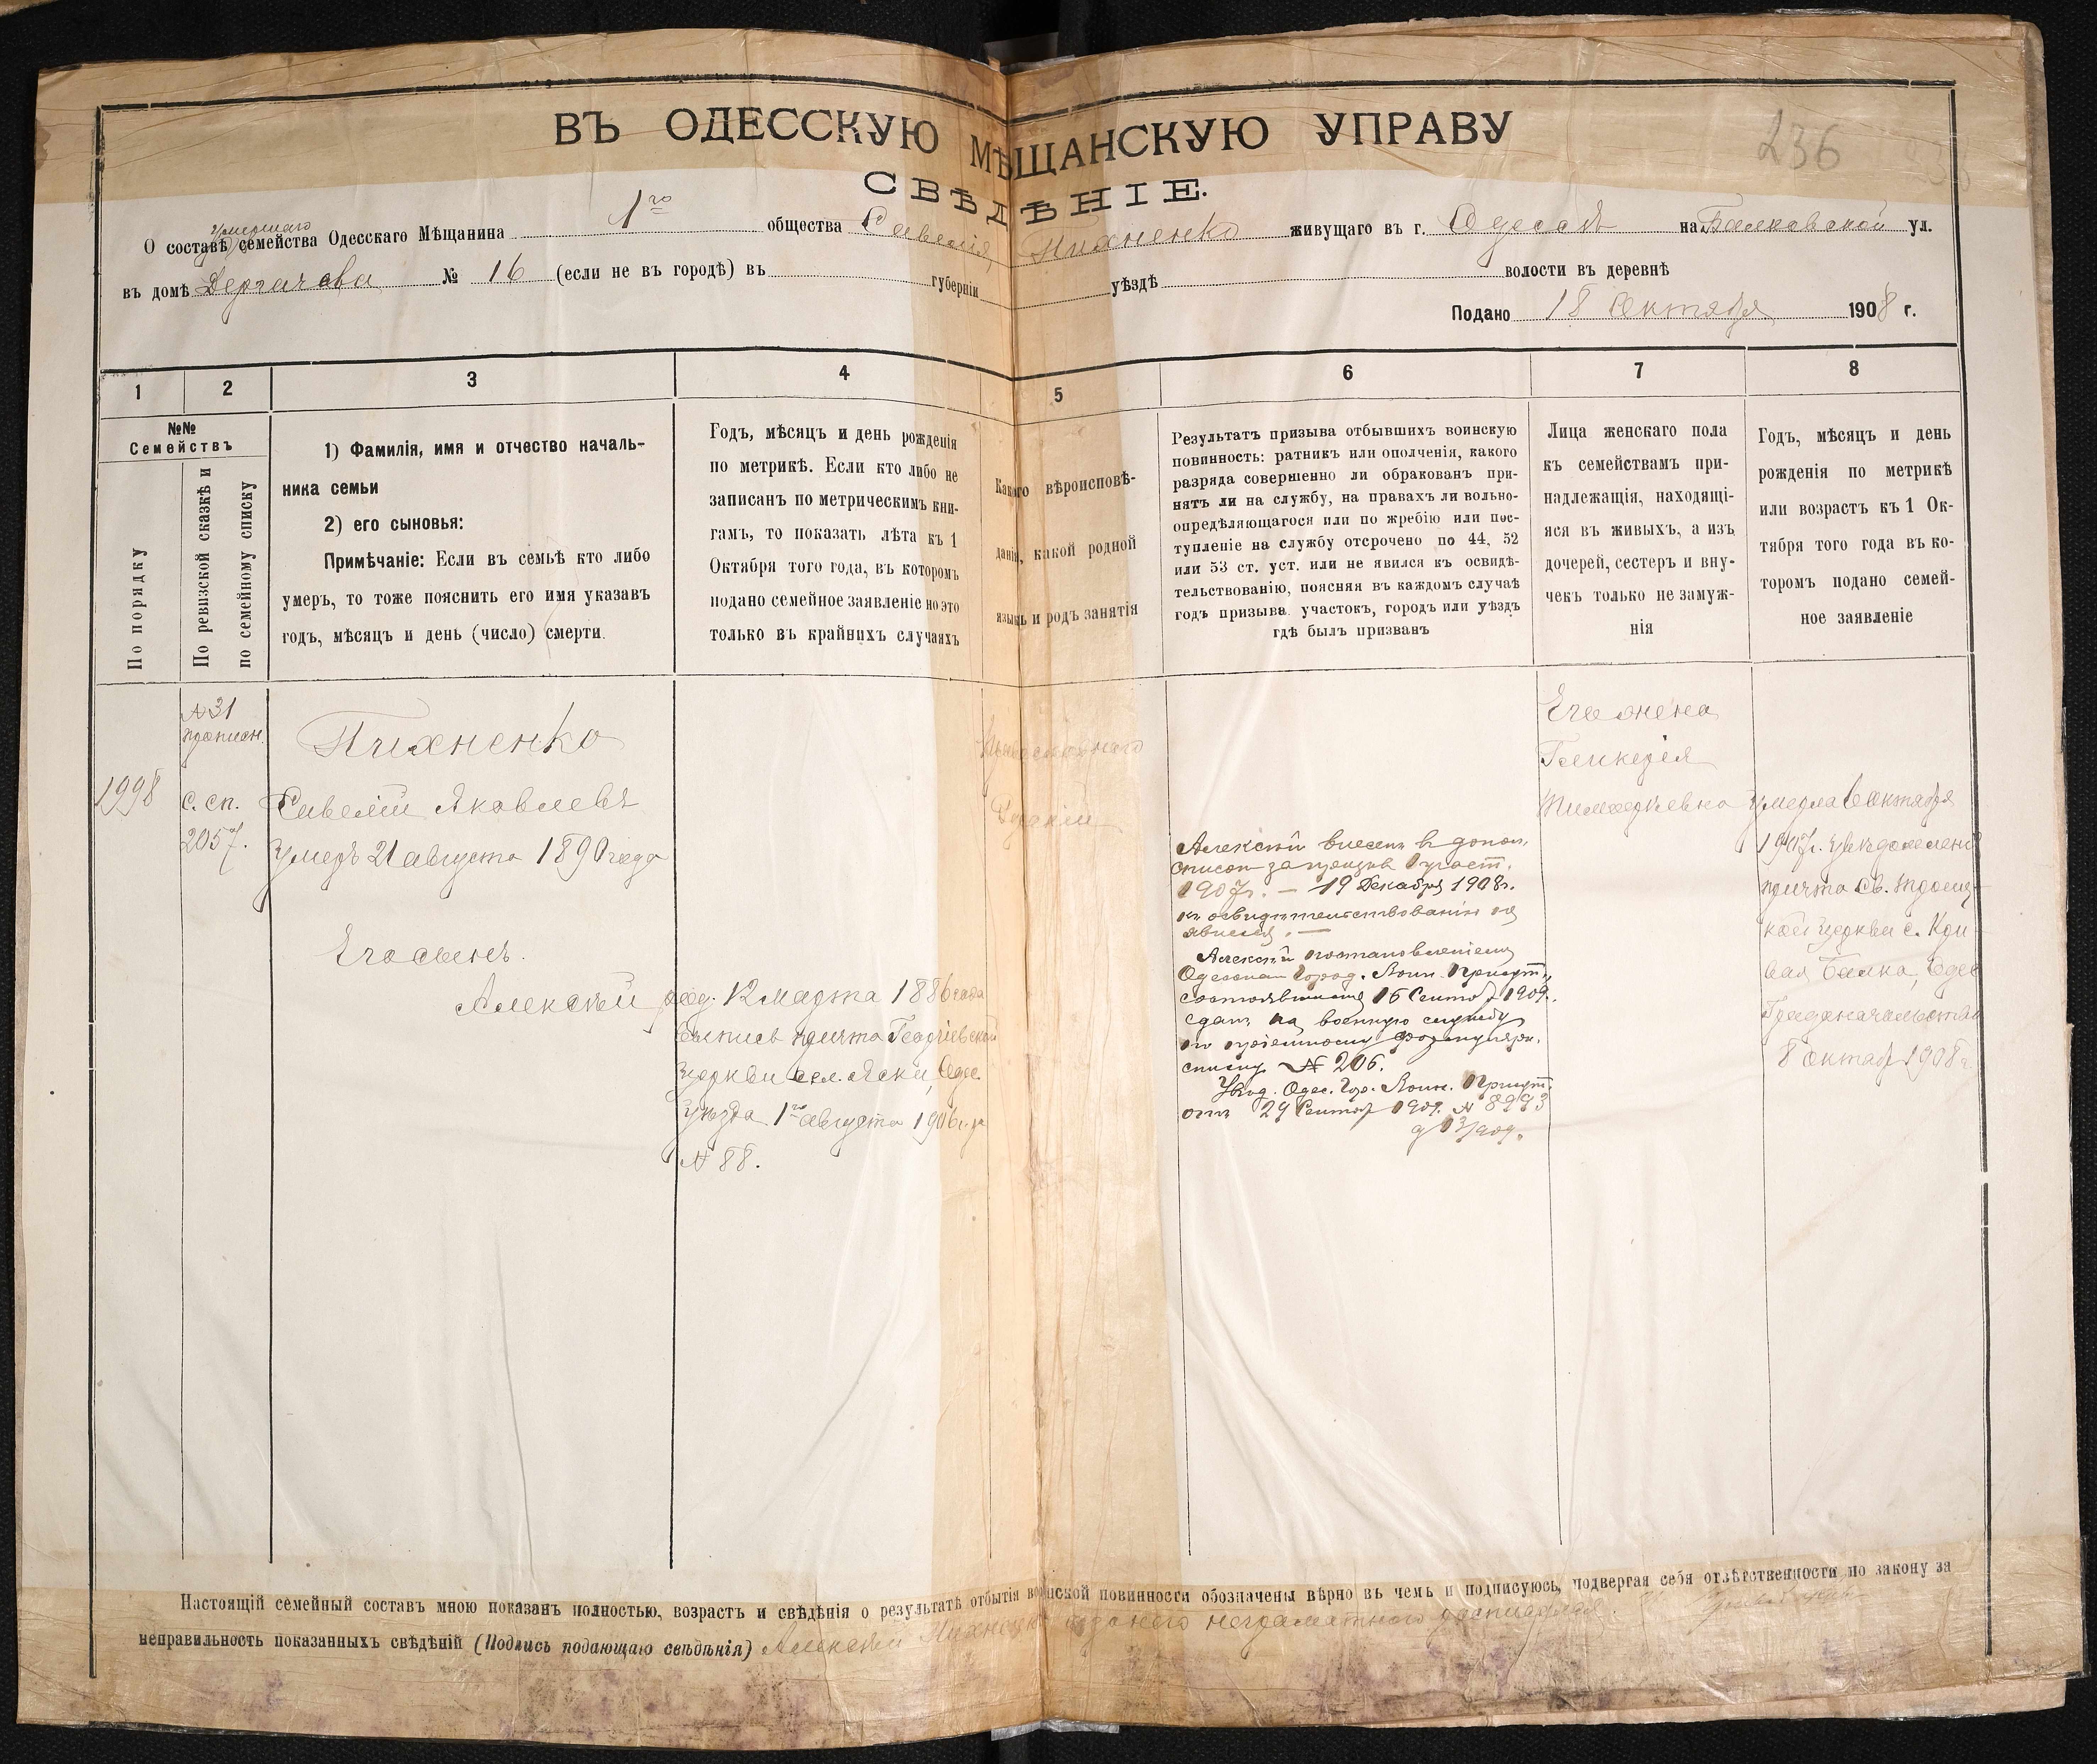 ВЪ ОДЕССКУЮ МѢЩАНСКУЮ УПРАВУ
236
СВѢДѢНІЕ.
умершаго
О составѣ семейства Одесскаго Мѣщанина 1го общества Савелія Пихненко живущаго въ г. Одессѣ на Балковской ул.
въ домѣ Дергачева № 16 (если не въ городѣ) въ губерніи уѣздѣ волости въ деревнѣ
Подано 18 Октября 1908 г.
1
2
3
4
5
6
7
8
№№
Семействъ
По порядку
По ревизской сказкѣ и
по семейному списку
1) Фамилія, имя и отчество началь-
ника семьи
2) его сыновья:
Примѣчаніе: Если въ семьѣ кто либо
умеръ, то тоже пояснить его имя указавъ
годъ, мѣсяцъ и день (число) смерти.
Годъ, мѣсяцъ и день рожденія
по метрикѣ. Если кто либо не
записанъ по метрическимъ кни-
гамъ, то показать лѣта къ 1
Октября того года, въ которомъ
подано семейное заявленіе но это
только въ крайнихъ случаяхъ
Какого вѣроисповѣ-
данія, какой родной
языкъ и родъ занятія
Результатъ призыва отбывшихъ воинскую
повинность: ратникъ или ополченія, какого
разряда совершенно ли обракованъ при-
нятъ ли на службу, на правахъ ли вольно-
опредѣляющагося или по жребію или пос-
тупленіе на службу отсрочено по 44, 52
или 53 ст. уст. или не явился къ освидѣ-
тельствованію, поясняя въ каждомъ случаѣ
годъ призыва участокъ, городъ или уѣздъ
гдѣ былъ призванъ
Лица женскаго пола
къ семействамъ при-
надлежащія, находящі-
яся въ живыхъ, а изъ
дочерей, сестеръ и вну-
чекъ только не замуж-
нія
Годъ, мѣсяцъ и день
рожденія по метрикѣ
или возрастъ къ 1 Ок-
тября того года въ ко-
торомъ подано семей-
ное заявленіе
1998
№31
прописн.
с. сп.
2057.
Пихненко
Савелій Яковлевъ
умеръ 21 августа 1890 года
Его сынъ.
Алексѣй
род. 12 марта 1886 года
выпись причта Георгіевской
церкви сел. Яски, Одес.
уѣзда 1го августа 1906 года
№ 88.
Православнаго
Алексѣй внесен в допол.
список за призыв 1 участ.
1907г. — 19 Декабря 1908г.
къ освидѣтельствованію не
явился. —
Алексѣй постановленіем
Одесскаго Город. Воин. Присут.,
состоявшимся 16 Сентяб. 1909г.
сданъ на военную службу
по пріемному формулярн.
списку № 206.
Увѣд. Одес. Гор. Воин. Присут.
отъ 29 Сентяб. 1909. № 8993
Его жена
Гликерія
Тимофѣевна
умерла 6 октября
1907г. увѣдомленіе
причта Св. Троиц-
кой церкви с. Кри-
вая Балка, Одес.
Градоначальства
8 Октяб. 1908г.
Настоящій семейный составъ мною показанъ полностью, возрастъ и свѣдѣнія о результатѣ отбытія воинской повинности обозначены вѣрно въ чемъ и подписуюсь, подвергая себя отвѣтственности по закону за
неправильность показанныхъ свѣдѣній (Подпись подающаго свѣдѣнія) Алексѣй Пихненко а за него неграмотнаго расписался